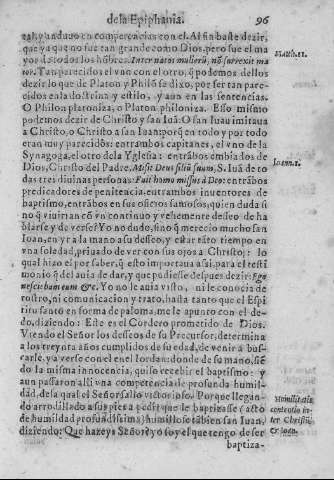 de la Epiphania. 96
tal, y anduuo en competencias con el. Al fin baste dezir,
que ya que no fue tan grande como Dios, pero fue el ma
yor de todos los hõbres. Inter natos mulierũ, nõ surrexit ma
Matth. 11.
ior. Tan parecidos el vno con el otro, q̃ podemos dellos
dezir lo que de Platon y Philõ se dixo, por ser tan pare-
cidos en la letra y estilo, y aun en las sentencias.
O Philon platoniza, o Platon philoniza. Esso mismo
podemos dezir de Christo y san Iuã: O san Iuau imitaua
a Christo, o Christo a san Iuan: porq̃ en todo y por todo
eran muy parecidos: entrambos capitanes, el vno de la
Synagoga, el otro de la Yglesia: entrãbos embiados de
Dios, Christo del Padre, Misit Deus filiũ suum, S. Iuã de to
Ioann. 1.
das tres diuinas personas: Fuit homo missus à Deo: entrãbos
predicadores de penitencia, entrambos inuentores de
baptismo, entrãbos en sus oficios famosos, quien duda si
no q̃ viuirian cõ vn continuo y vehemente deseo de ha
blarse y de verse? Yo no dudo, sino q̃ merecio mucho san
Iuan, en yr a la mano a su deseo, y estar tãto tiempo en
vna soledad, priuado de ver con sus ojos a Christo: lo
qual hizo el por saber, q̃ esto importaua assi, para el testi
monio q̃ del auia de dar, y que pudiesse despues dezir: Ego
nesciebam eum &c. Yo no le auia visto, ni le conocia de
rostro, ni comunicacion y trato, hasta tanto que el Espi
ritu santo en forma de paloma, me le apunto con el de-
do, diziendo: Este es el Cordero prometido de Dios.
Viendo el Señor los deseos de su Precursor, determina
a los treynta años cumplidos de su edad, de venir a bus-
carle, y a verse con el en el Iordan: donde de su mano, siẽ
do la misma innocencia, quiso recebir el baptismo: y
aun passaron alli vna competencia de profunda humil-
dad, de la qual el Señor salio victorioso. Porque llegan-
do arrodillado a sus pies a pedir que le baptizasse (acto
de humildad profundissima) humillose tãbien san Iuan,
diziendo: Que hazeys Señor? yo soy el que tengo de ser
Humilitatis
contentio in-
ter Christũ
& Ioan.
baptiza-